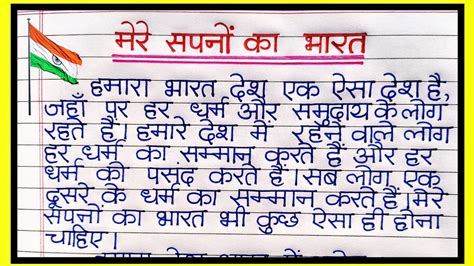 मेरे सपनों का भारत
हमारा भारत देश एक ऐसा देश है,
जहाँ पर हर धर्म और समुदाय के लोग
रहते हैं। हमारे देश में रहने वाले लोग
हर धर्म का सम्मान करते हैं और हर
धर्म को पसंद करते हैं। सब लोग एक
दूसरे के धर्म का सम्मान करते हैं। मेरे
सपनों का भारत भी कुछ ऐसा ही होना
चाहिए।